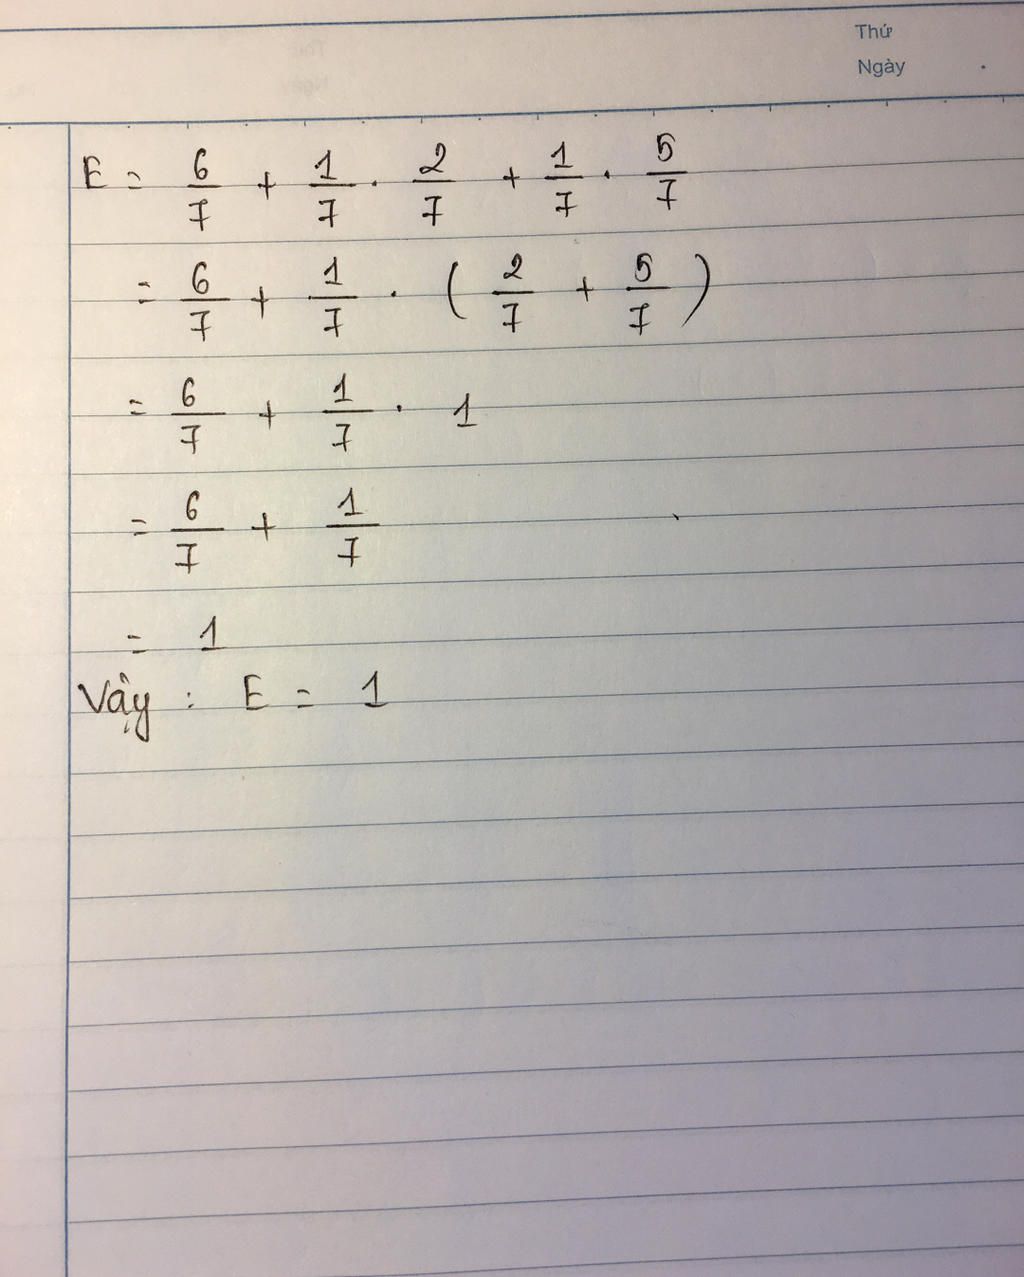 Thứ
Ngày
E = 6/7 + 1/7 . 2/7 + 1/7 . 5/7
= 6/7 + 1/7 . ( 2/7 + 5/7 )
= 6/7 + 1/7 . 1
= 6/7 + 1/7
= 1
Vậy : E = 1